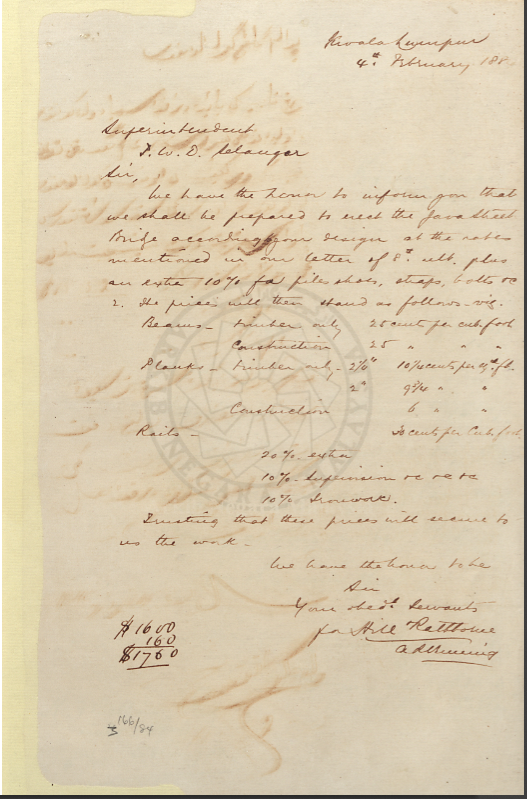 Kwala Lumpur
4th February 188
Superintendent
P. W. D. Selangor
Sir,
We have the honor to inform you that
we shall be prepared to erect the Java Street
Brige according your design at the rates
mentioned in our letter of 8th ulto. plus
an extra 10% for pileshoes, straps, bolts &c
2. The prices will then stand as follows - viz.
Beams - timber only 25 cents per cub foot
Construction 25 " " "
Planks - timber only - 2½" 10¼ cents per sq. ft.
2" 9¾ " "
Construction 6 " "
Rails - 30 cents per Cub. foot
20% extra
10% Supervision &c &c &c
10% Ironwork.
Trusting that these prices will secure to
us the work -
We have the honor to be
Sir
Your obedt. Servants
for Hill Rathborne
$1600
160
$1760
166/84